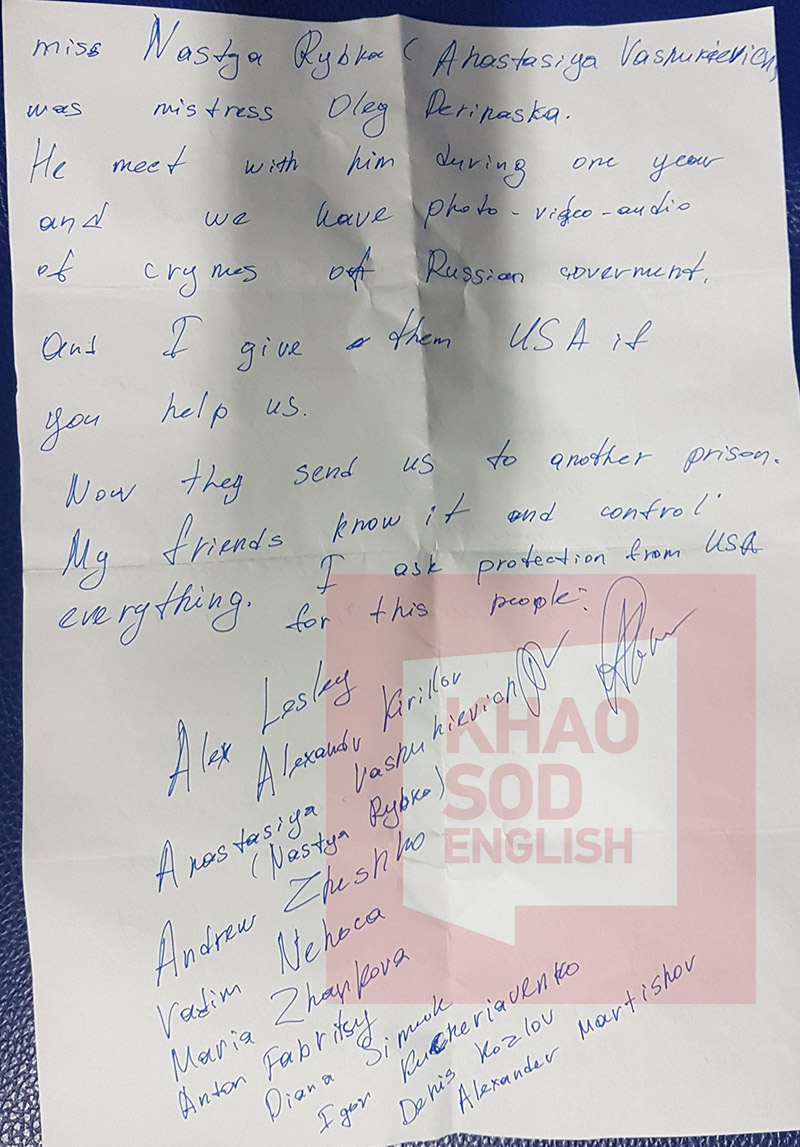 miss Nastya Rybka (Anastasiya Vashukievich)
was mistress Oleg Deripaska.
He meet with him during one year
and we have photo-video-audio
of crymes of Russian goverment.
And I give them USA if
you help us.
Now they send us to another prison.
My friends know it and control
everything. I ask protection from USA
for this people:
Alex Lesley
Alexandr Kirillov
Anastasiya Vashukievich
(Nastya Rybka)
Andrew Zheshko
Vadim
Maria Zharkova
Anton Fabritsy
Diana
Igor Kucheriavenko
Denis Kozlov
Alexander Martishov
KHAO
SOD
ENGLISH